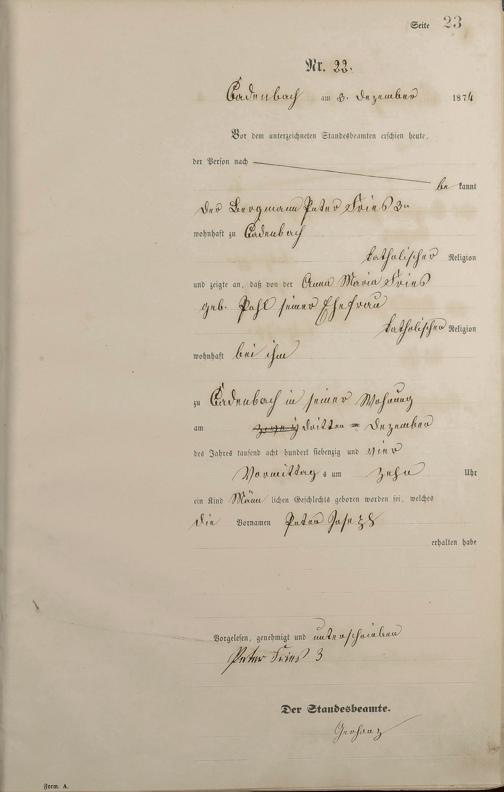 Seite 23
Nr. 23.
Cadenbach am 3. Dezember 1874
Vor dem unterzeichneten Standesbeamten erschien heute,
der Person nach
be kannt
der Bergmann Peter Fries 3
wohnhaft zu Cadenbach
katholischer Religion
und zeigte an, daß von der Anna Maria Fries
geb. Pahl seiner Ehefrau
katholischer Religion
wohnhaft bei ihm
zu Cadenbach in seiner Wohnung
am dritten Dezember
des Jahres tausend acht hundert siebenzig und vier
Vormittag s um zehn Uhr
ein Kind Männ lichen Geschlechts geboren worden sei, welches
die Vornamen Peter Joseph
erhalten habe
Vorgelesen, genehmigt und unterschrieben
Peter Fries 3
Der Standesbeamte.
Gerharz
Form. A.